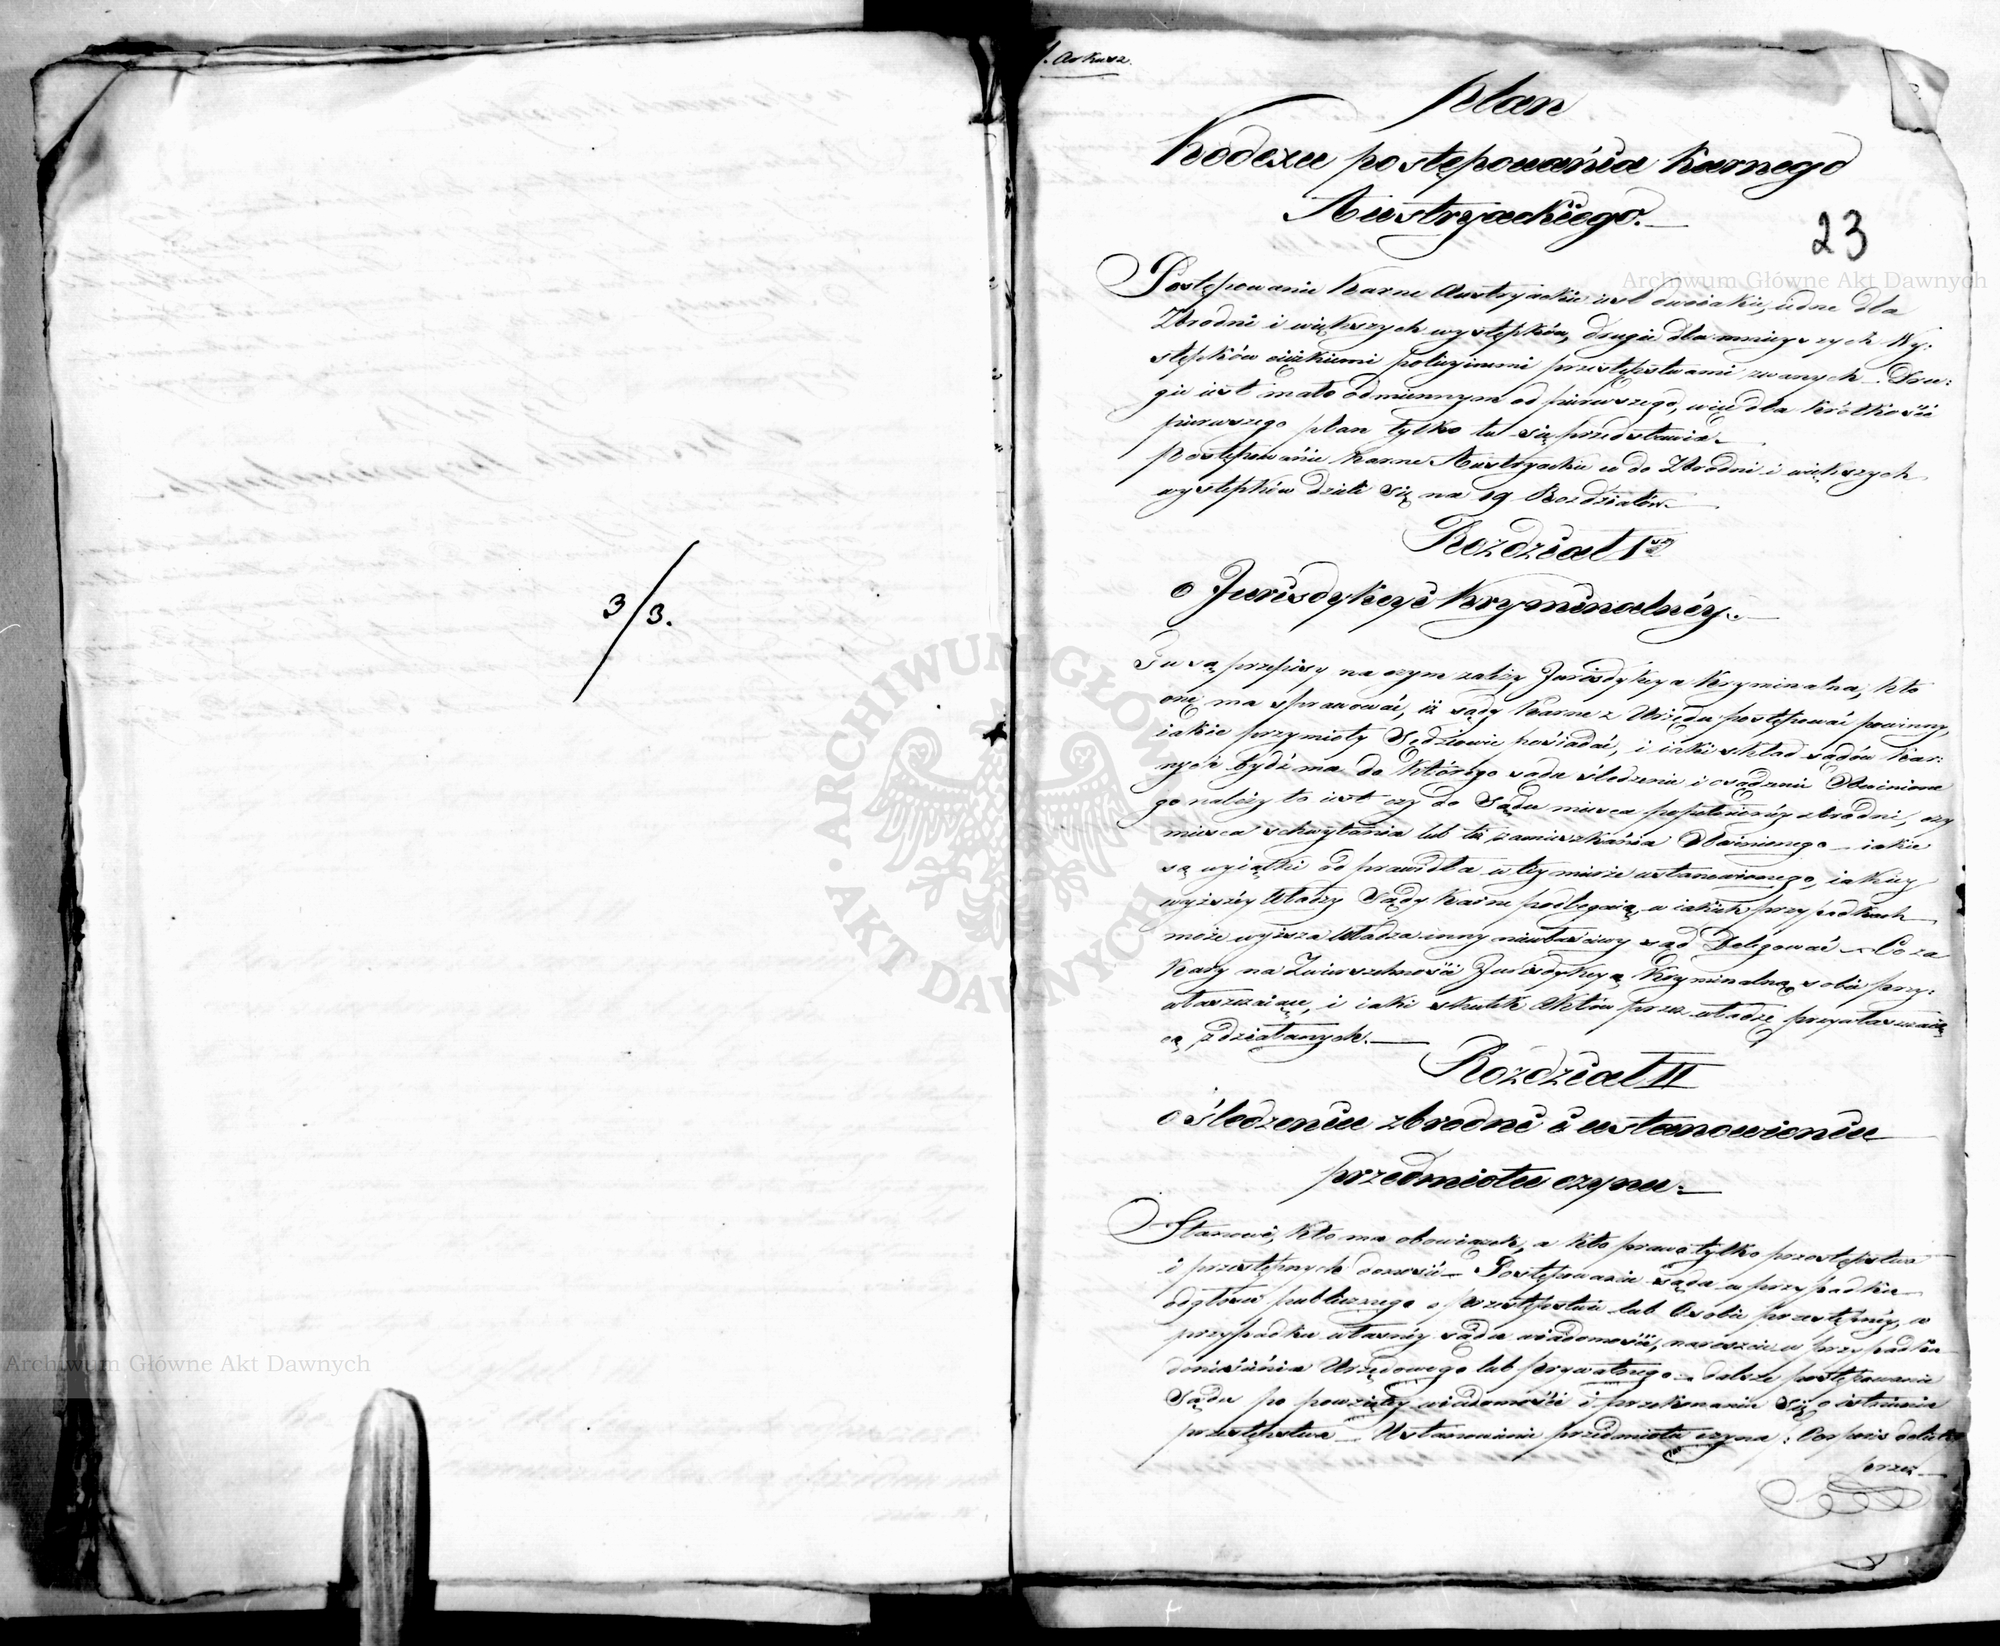 3/3.
1. Arkusz.
Plan
Kodexu postępowania karnego
Austryackiego.
23
Postępowanie Karne Austryackie iest dwoiakie, iedne dla
Zbrodni i większych występków, drugie dla mnieyszych Wy:
stępków ciężkiemi policyinemi przestępstwami zwanych. Dru:
gie iest mało odmiennym od pierwszego, więc dla krótkości
pierwszego plan tylko tu się przedstawia.
Postępowanie Karne Austryackie co do Zbrodni i większych
występków dzieli się na 19 Rozdziałów.
Rozdział I szy
o Jurisdykcyi Kryminalnéy.
Tu są przepisy na czym zależy Jurisdykcya Kryminalna, kto
onę ma sprawować, iż sądy Karne z Urzędu postępować powinny,
iakie przymioty Sędziowie posiadać, i iaki skład sądów Kar:
nych bydź ma do którego sądu śledzenie i osądzenie Obwinione
go należy to iest czy do Sądu mieysca popełnionéy zbrodni, czy
mieysca schwytania lub też zamieszkania Obwinionego – iakie
są wyiątki od prawidła w tey mierze ustanowionego, iakiey
wyższéy Władzy Sądy Karne podlegaią, w iakich przypadkach
może wyższa Władza inny niewłaściwy sąd Delegować – Co za
Kary na Zwierzchność Jurisdykcyą Kryminalną sobie przy:
właszczaiącą, i iaki skutek Aktów przez władzę przywłaszczaią
cą zdziałanych.
Rozdział II
o śledzeniu zbrodni i ustanowieniu
przedmiotu czynu.
Stanowi, kto ma obowiązek, a kto prawo tylko przestępstwa
i przestępnych donosić – Postępowanie sądu w przypadku
odgłosu publicznego o przestępstwie lub Osobie przestępnéy, w
przypadku własnéy sądu wiadomości, nareszcie w przypadku
doniesienia Urzędowego lub prywatnego – dalsze postępowanie
Sądu po powziętéy wiadomości i przekonaniu się o istnieniu
przestępstwa – Ustanowienie przedmiotu czynu, Corporis delicti
przez
Archiwum Główne Akt Dawnych
Archiwum Główne Akt Dawnych
ARCHIWUM GŁÓWNE AKT DAWNYCH